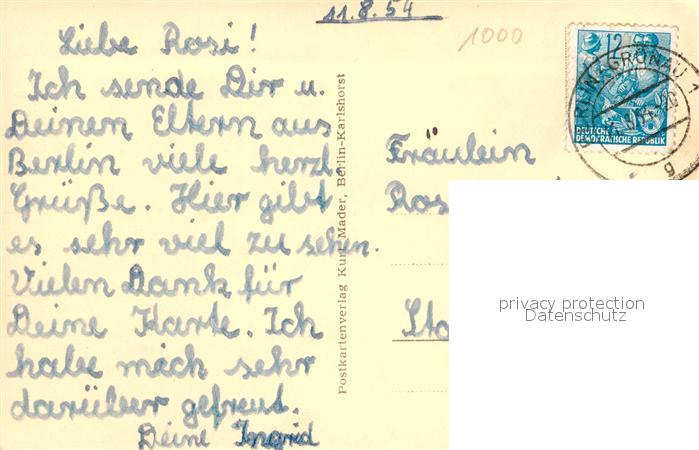 11.8.54
1000
Liebe Rosi!
Ich sende Dir u.
Deinen Eltern aus
Berlin viele herzl
Grüße. Hier gibt
es sehr viel zu sehen.
Vielen Dank für
Deine Karte. Ich
habe mich sehr
darüber gefreut.
Deine Ingrid
Postkartenverlag Kurt Mader, Berlin-Karlshorst
12
DEUTSCHE
DEMOKRATISCHE REPUBLIK
GRÜNAU 1
g
Fräulein
Ros
Sta
privacy protection
Datenschutz